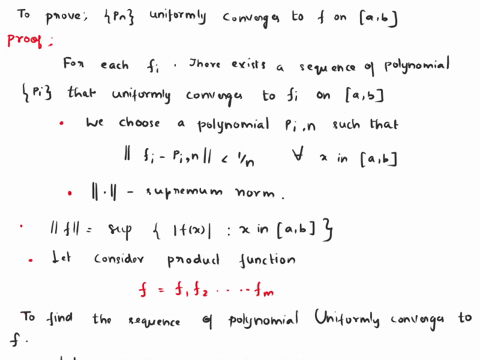 To prove; {Pn} uniformly converges to f on [a,b]
Proof:
For each fi . There exists a sequence of polynomial
{Pi} that uniformly converges to fi on [a,b]
• We choose a polynomial Pi,n such that
|| fi - Pi,n || < 1/n ∀ x in [a,b]
• ||·|| - supremum norm.
• ||f|| = sup { |f(x)| : x in [a,b] }
• Let consider product function
f = f1 f2 ..... fm
To find the sequence of polynomial Uniformly converga to
f.